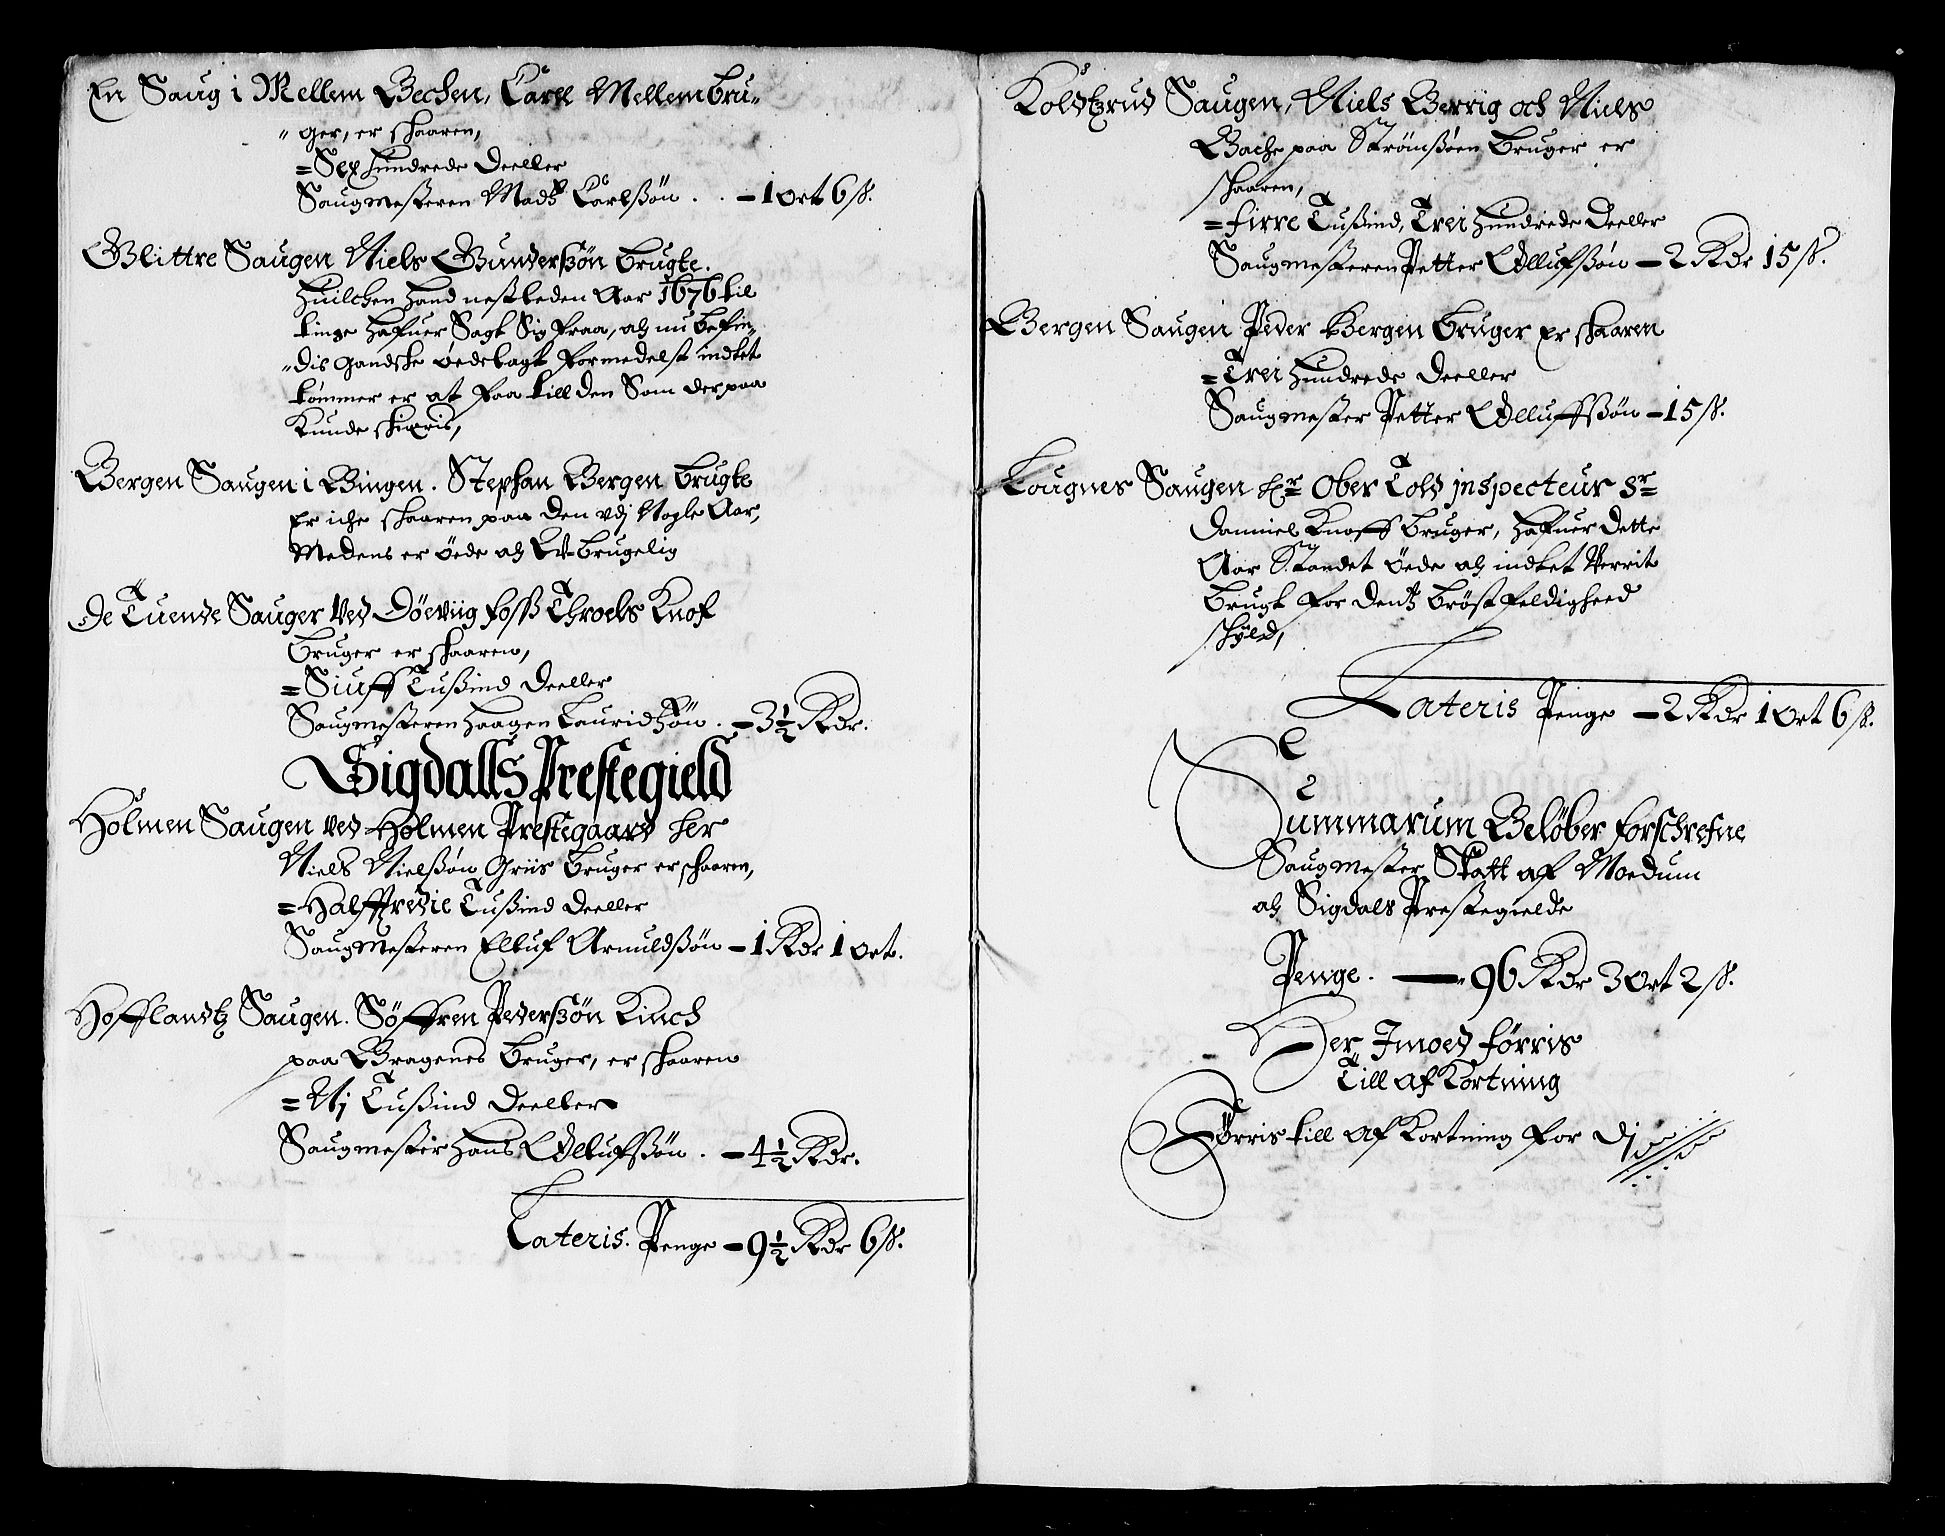 En Saug i Mellem Bechen, Carll Mellem bru„
„ ger, er skaaren,
= Sex hundrede deeller
Saugmesteren Madtz Carlssön . . – 1 ort 6 ß.
Glittre Saugen Niels Gunderssön brugte.
huilchen hand nestleden Aar 1676 til
tinge hafuer Sagt Sig fraa, och nu befin„
„dis gandske oedelagt formedelst indtet
tömmer er at faa till den Som der paa
Kunde skieris,
Bergen Saugen i Bingen. Stephan Bergen brugte
Er iche skaaren paa den udj Nogle Aar,
Medens er öede och Ubrugelig
De Tuende Sauger Ved Döeviig foss Throels Knof
bruger er skaaren,
= Siuff Tussind deeller
Saugmesteren haagen Lauridtzön . – 3½ Rdr.
Sigdalls Prestegield
Holmen Saugen Ved Holmen Prestegaard her
Niels Nielssön Griis bruger er skaaren,
= Halfftredie Tussind deeller
Saugmesteren Elluf Arnuldssön – 1 Rdr 1 ort.
Hofflandtz Saugen. Söffren Pederssön Kinch
paa Bragenes bruger, er skaaren
= Nj Tussind deeller
Saugmester hans Ellufssön . – 4½ Rdr.
Lateris. Penge – 9½ Rdr 6 ß.
Koldtzrud Saugen, Niels Berrig och Niels
Bache paa Strömssöen bruger er
skaaren,
= firre Tussind, Trei hundrede deeller
Saugmesteren Petter Ellufssön – 2 Rdr 15 ß.
Bergen Saugen Peder Bergen bruger er skaaren
= Trei hundrede deeller
Saugmester Petter Elluffssön – 15 ß.
Lougnes Saugen hr Ober Told inspecteur Sr
Danniel Knoff bruger, hafuer dette
Aar Standet öede och indtet Verrit
brugt for dentz bröstfeldigheed
skyld,
Lateris Penge – 2 Rdr 1 ort 6 ß.
Summarum Belöber forschrefne
Saugmester Skatt af Moedum
och Sigdals Prestegielde
Penge. — 96 Rdr 3 ort 2 ß.
Her Imoed förris
Till af Kortning
Förris till af Kortning for Dj